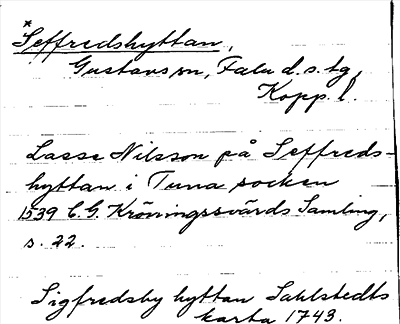 *Seffredshyttan,
Gustavs sn, Falu d.s.tg,
Kopp. l.
Lasse Nilsson på Seffreds-
hyttan i Tuna socken
1539 C.G. Kröningssvärds Samling,
s. 22.
Sigfredsby hyttan Sahlstedts
karta 1743.